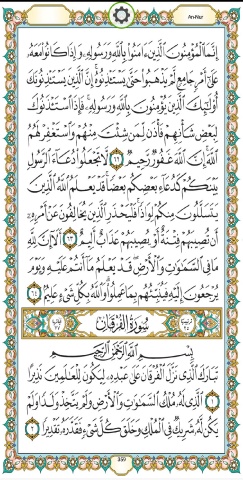 An-Nur
إِنَّمَا ٱلْمُؤْمِنُونَ ٱلَّذِينَ ءَامَنُوا۟ بِٱللَّهِ وَرَسُولِهِۦ وَإِذَا كَانُوا۟ مَعَهُۥ
عَلَىٰٓ أَمْرٍ جَامِعٍ لَّمْ يَذْهَبُوا۟ حَتَّىٰ يَسْتَـْٔذِنُوهُ ۚ إِنَّ ٱلَّذِينَ يَسْتَـْٔذِنُونَكَ
أُو۟لَـٰٓئِكَ ٱلَّذِينَ يُؤْمِنُونَ بِٱللَّهِ وَرَسُولِهِۦ ۚ فَإِذَا ٱسْتَـْٔذَنُوكَ
لِبَعْضِ شَأْنِهِمْ فَأْذَن لِّمَن شِئْتَ مِنْهُمْ وَٱسْتَغْفِرْ لَهُمُ
ٱللَّهَ ۚ إِنَّ ٱللَّهَ غَفُورٌ رَّحِيمٌ ٦٢ لَّا تَجْعَلُوا۟ دُعَآءَ ٱلرَّسُولِ
بَيْنَكُمْ كَدُعَآءِ بَعْضِكُم بَعْضًا ۚ قَدْ يَعْلَمُ ٱللَّهُ ٱلَّذِينَ
يَتَسَلَّلُونَ مِنكُمْ لِوَاذًا ۚ فَلْيَحْذَرِ ٱلَّذِينَ يُخَالِفُونَ عَنْ أَمْرِهِۦٓ
أَن تُصِيبَهُمْ فِتْنَةٌ أَوْ يُصِيبَهُمْ عَذَابٌ أَلِيمٌ ٦٣ أَلَآ إِنَّ لِلَّهِ
مَا فِى ٱلسَّمَـٰوَٰتِ وَٱلْأَرْضِ ۖ قَدْ يَعْلَمُ مَآ أَنتُمْ عَلَيْهِ وَيَوْمَ
يُرْجَعُونَ إِلَيْهِ فَيُنَبِّئُهُم بِمَا عَمِلُوا۟ ۗ وَٱللَّهُ بِكُلِّ شَىْءٍ عَلِيمٌۢ ٦٤
سُورَةُ الْفُرْقَانِ
بِسْمِ ٱللَّهِ ٱلرَّحْمَـٰنِ ٱلرَّحِيمِ
تَبَارَكَ ٱلَّذِى نَزَّلَ ٱلْفُرْقَانَ عَلَىٰ عَبْدِهِۦ لِيَكُونَ لِلْعَـٰلَمِينَ نَذِيرًا
١ ٱلَّذِى لَهُۥ مُلْكُ ٱلسَّمَـٰوَٰتِ وَٱلْأَرْضِ وَلَمْ يَتَّخِذْ وَلَدًا وَلَمْ
يَكُن لَّهُۥ شَرِيكٌ فِى ٱلْمُلْكِ وَخَلَقَ كُلَّ شَىْءٍ فَقَدَّرَهُۥ تَقْدِيرًا ٢
359